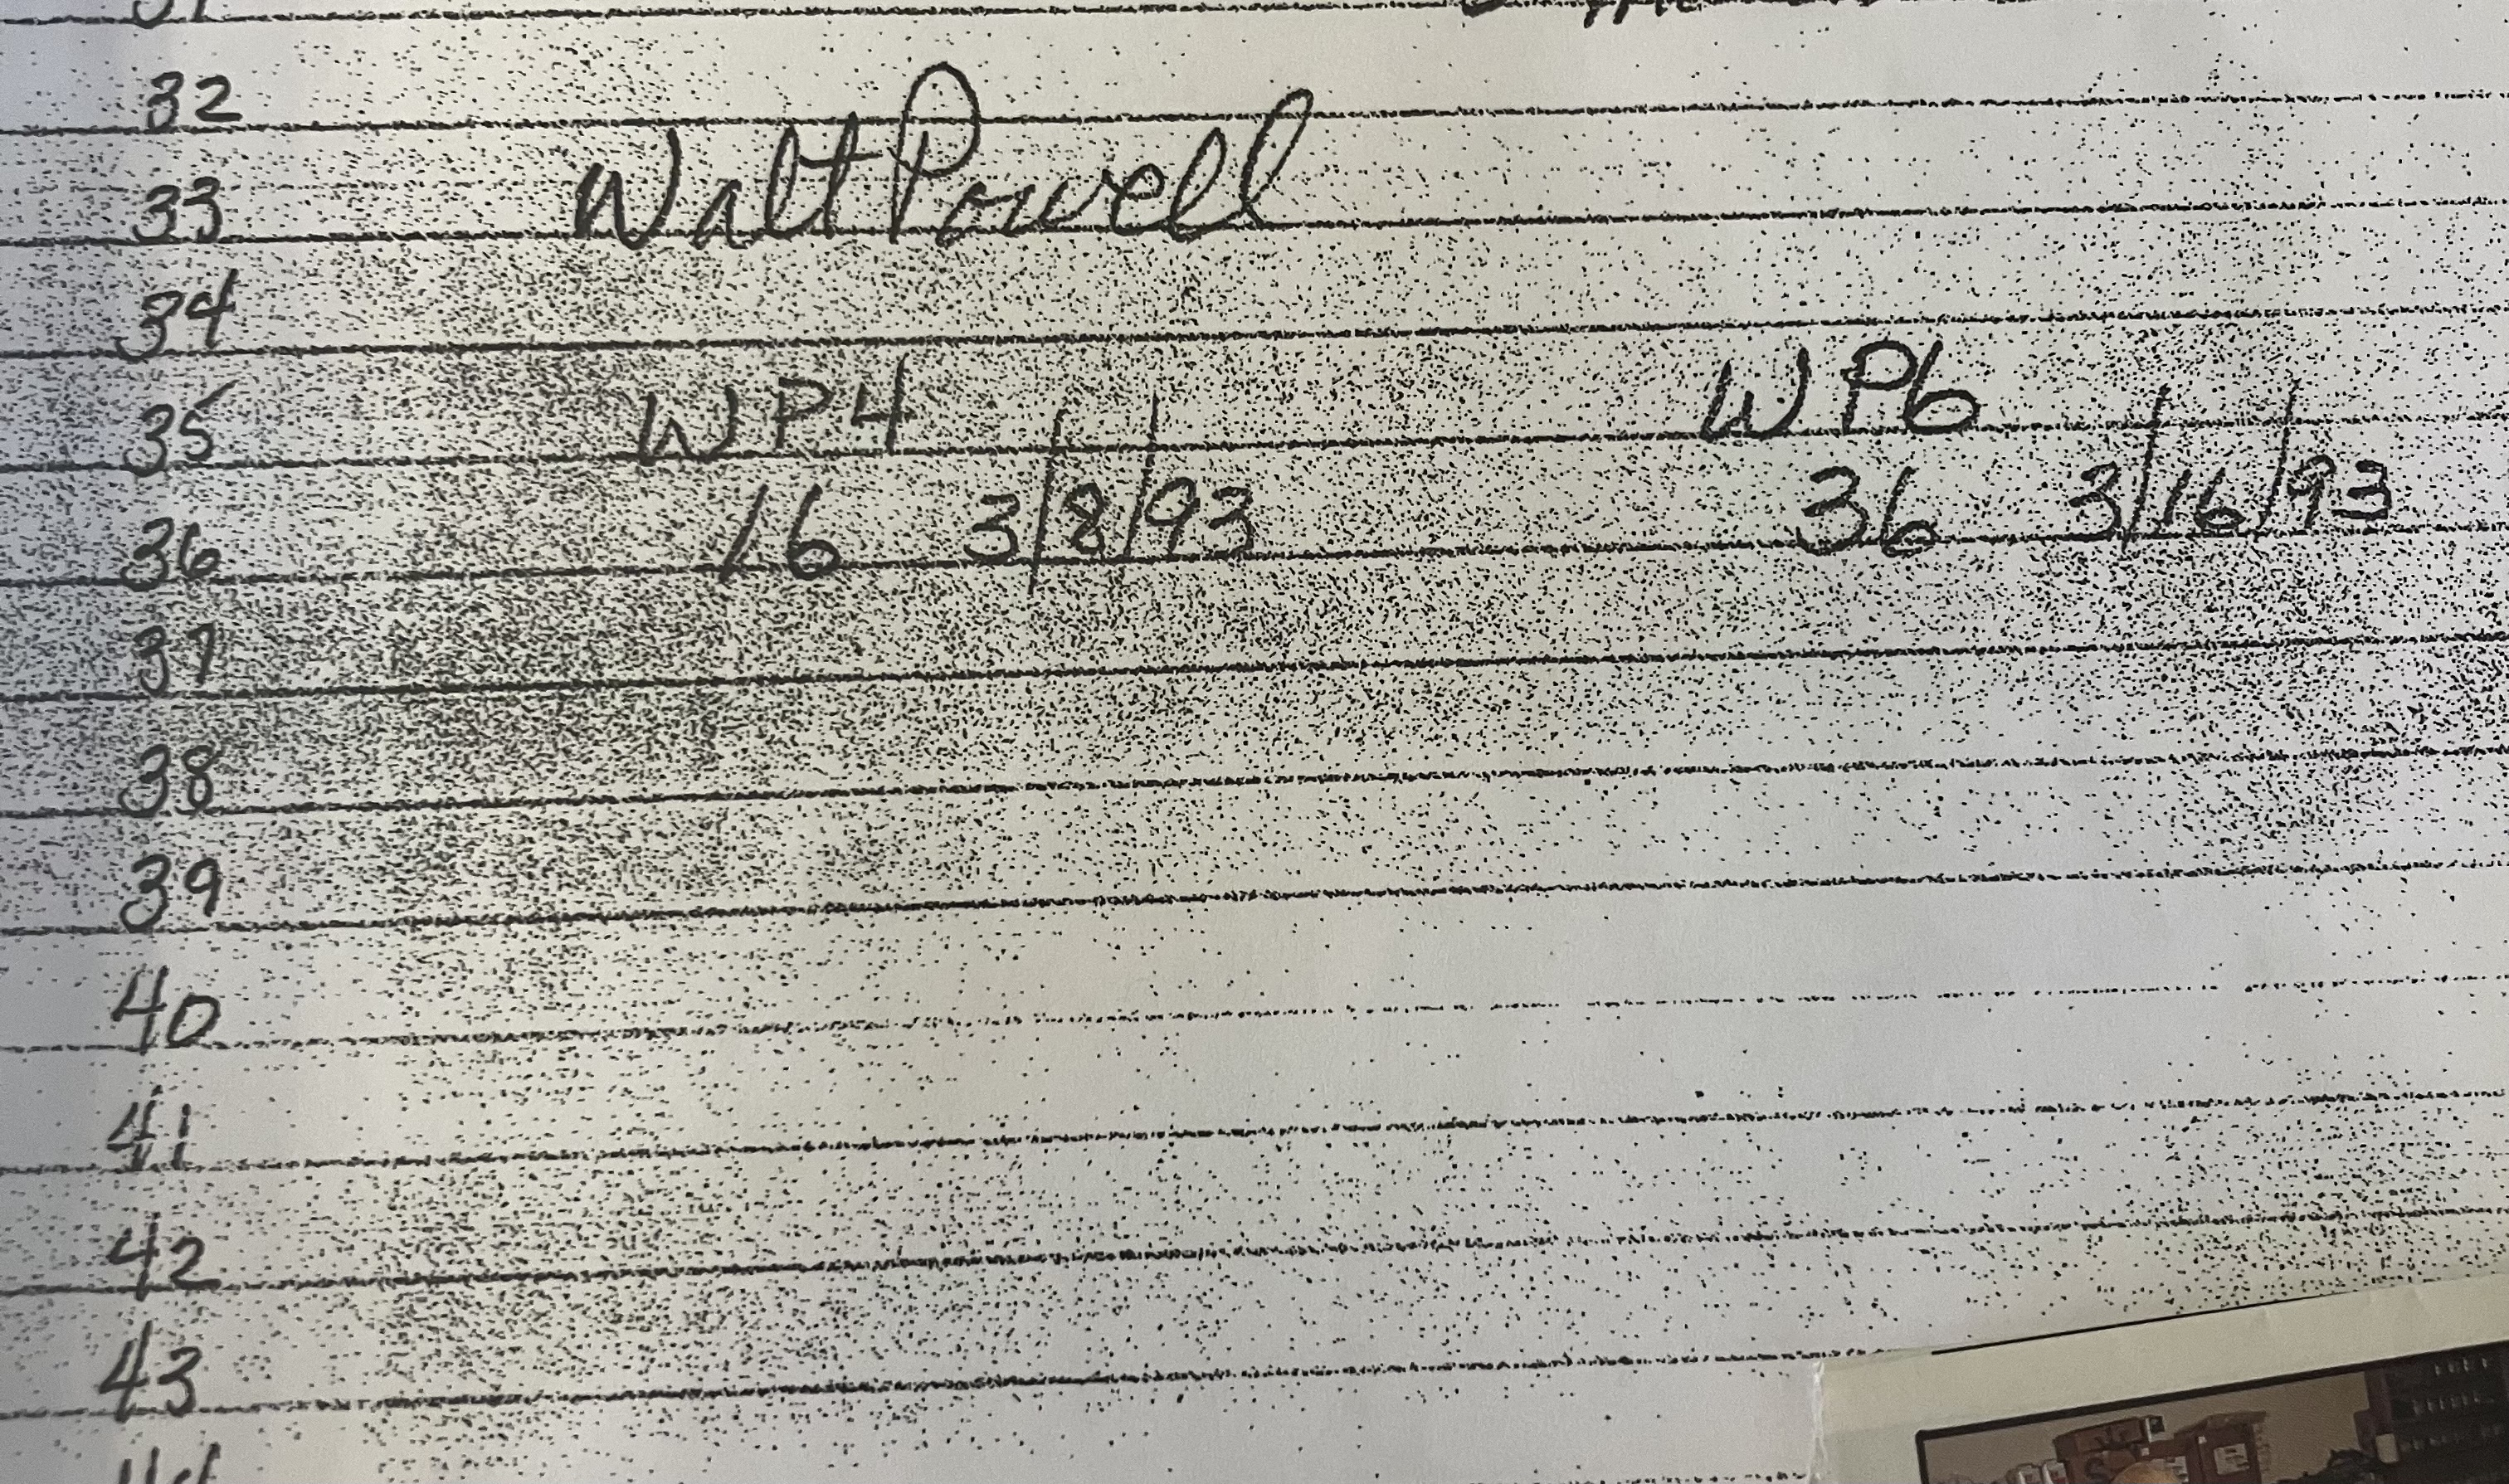 32
33 Walt Powell
34
35 WP4 WP6
36 16 3/8/93 36 3/16/93
37
38
39
40
41
42
43